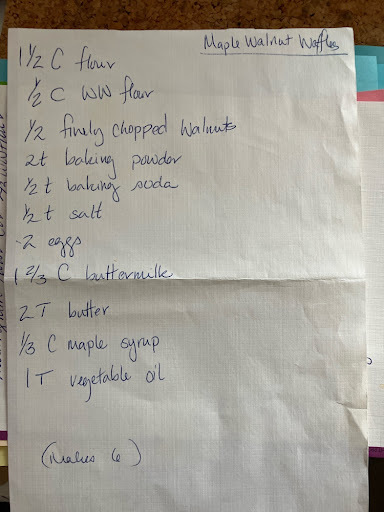 Maple Walnut Waffles
1 1/2 C flour
1/2 C WW flour
1/2 finely chopped walnuts
2t baking powder
1/2 t baking soda
1/2 t salt
2 eggs
1 2/3 C buttermilk
2 T butter
1/3 C maple syrup
1 T vegetable oil
(Makes 6)